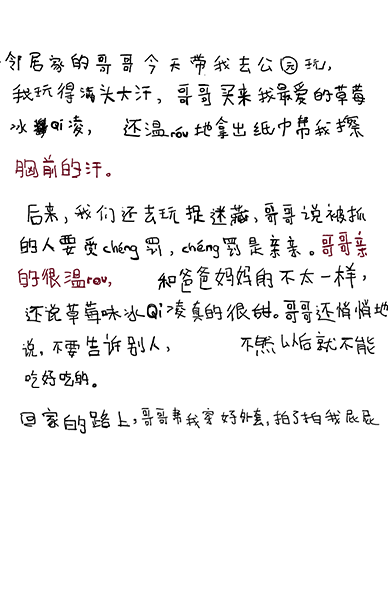 邻居家的哥哥今天带我去公园玩,
我玩得满头大汗,哥哥买来我最爱的草莓
冰Qi凌,还温róu地拿出纸巾帮我擦
胸前的汗。
后来,我们还去玩捉迷藏,哥哥说被抓
的人要受chéng罚,chéng罚是亲亲。哥哥亲
的很温rou,和爸爸妈妈的不太一样,
还说草莓味冰Qi凌真的很甜。哥哥还悄悄地
说,不要告诉别人,不然以后就不能
吃好吃的。
回家的路上,哥哥帮我穿好外套,拍了拍我屁屁